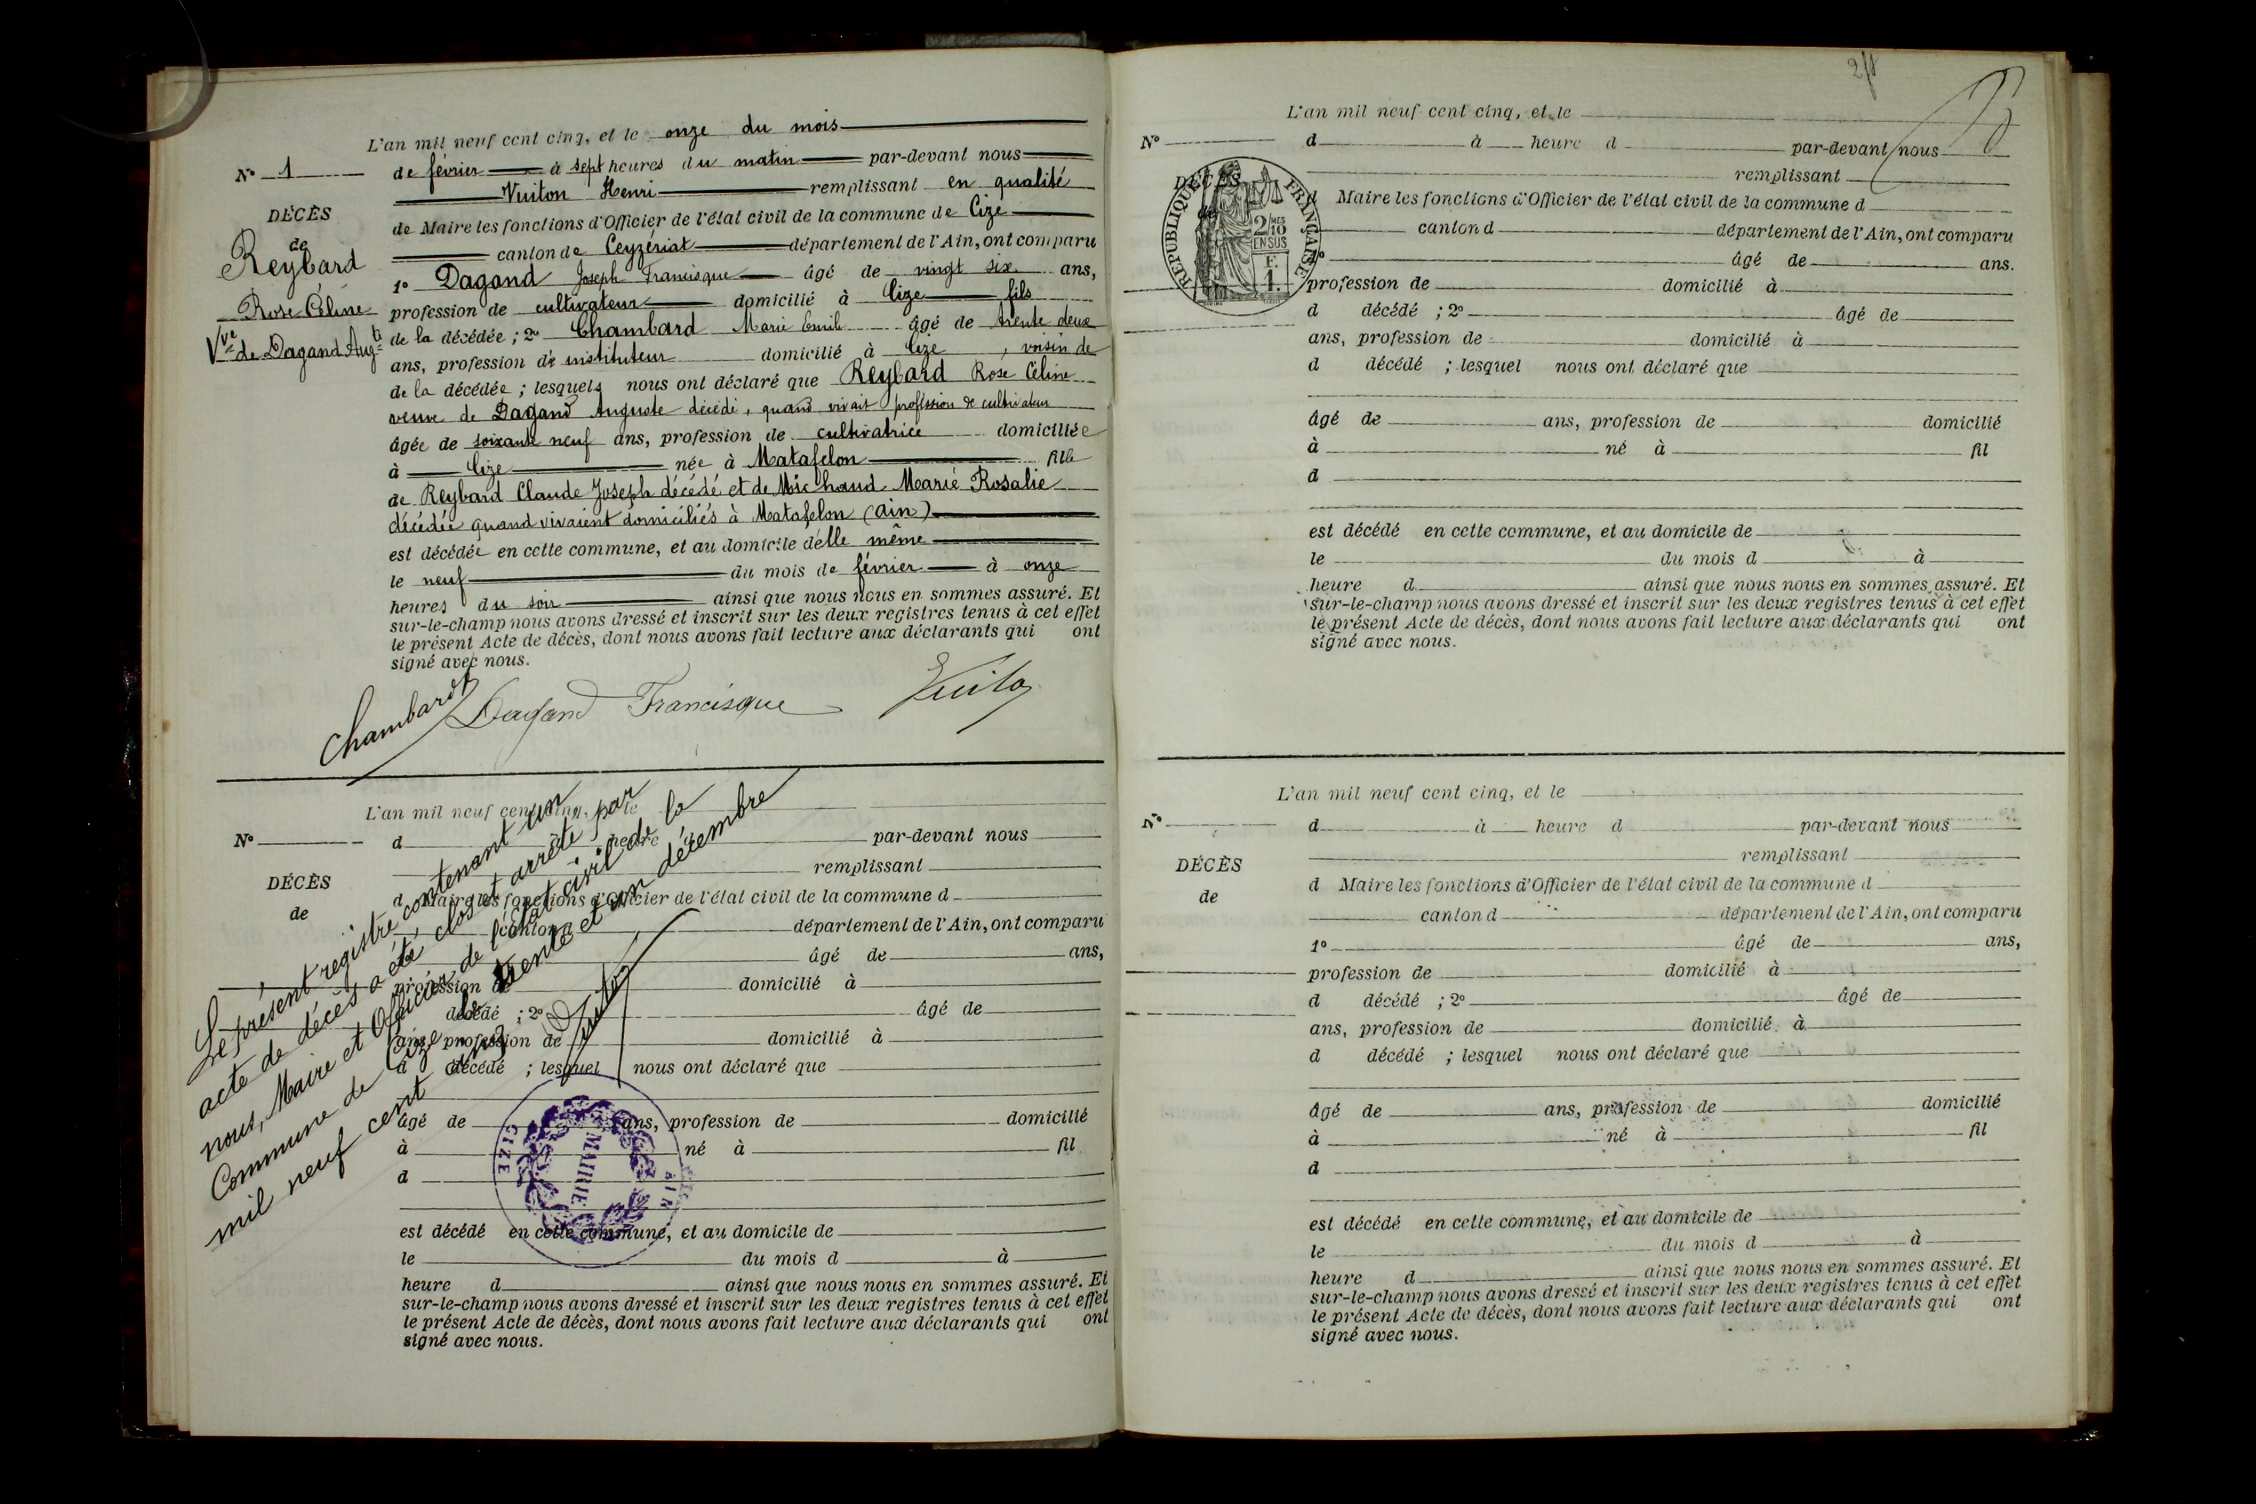 L'an mil neuf cent cinq, et le onze du mois
N° 1
de février à sept heures du matin par-devant nous
Vuiton Henri remplissant en qualité
DÉCÈS
de Maire les fonctions d'Officier de l'état civil de la commune de Cize
de
Reybard
canton de Ceyzériat département de l'Ain, ont comparu
1° Dagand Joseph Francisque âgé de vingt six ans,
Rose Céline
profession de cultivateur domicilié à Cize fils
Vve de Dagand Augte
de la décédée ; 2° Chambard Marie Emile âgé de trente deux
ans, profession d' instituteur domicilié à Cize , voisin de
de la décédée ; lesquels nous ont déclaré que Reybard Rose Céline
veuve de Dagand Auguste décédé, quand vivait profession de cultivateur
âgée de soixante neuf ans, profession de cultivatrice domiciliée
à Cize née à Matafelon fille
de Reybard Claude Joseph décédé et de Michaud Marie Rosalie
décédée quand vivaient domiciliés à Matafelon (ain)
est décédée en cette commune, et au domicile d'elle même
le neuf du mois de février à onze
heures du soir ainsi que nous nous en sommes assuré. Et
sur-le-champ nous avons dressé et inscrit sur les deux registres tenus à cet effet
le présent Acte de décès, dont nous avons fait lecture aux déclarants qui ont
signé avec nous.
Chambard Dagand Francisque Vuiton
L'an mil neuf cent cinq, et le
N°
d à heure d par-devant nous
remplissant
DÉCÈS
d Maire les fonctions d'Officier de l'état civil de la commune d
de
canton d département de l'Ain, ont comparu
âgé de ans,
profession de domicilié à
d décédé ; 2° âgé de
ans, profession de domicilié à
d décédé ; lesquel nous ont déclaré que
âgé de ans, profession de domicilié
à né à fil
d
est décédé en cette commune, et au domicile de
le du mois d à
heure d ainsi que nous nous en sommes assuré. Et
sur-le-champ nous avons dressé et inscrit sur les deux registres tenus à cet effet
le présent Acte de décès, dont nous avons fait lecture aux déclarants qui ont
signé avec nous.
Le présent registre contenant un
acte de décès a été clos et arrêté par
nous, Maire et Officier de l'Etat civil de la
Commune de Cize le trente et un décembre
mil neuf cent cinq
Vuiton
MAIRIE
CIZE
AIN
L'an mil neuf cent cinq, et le
N°
d à heure d par-devant nous
remplissant
DÉCÈS
RÉPUBLIQUE FRANÇAISE
2/10 EN SUS
F.
1.
d Maire les fonctions d'Officier de l'état civil de la commune d
canton d département de l'Ain, ont comparu
1° âgé de ans.
profession de domicilié à
d décédé ; 2° âgé de
ans, profession de domicilié à
d décédé ; lesquel nous ont déclaré que
âgé de ans, profession de domicilié
à né à fil
d
est décédé en cette commune, et au domicile de
le du mois d à
heure d ainsi que nous nous en sommes assuré. Et
sur-le-champ nous avons dressé et inscrit sur les deux registres tenus à cet effet
le présent Acte de décès, dont nous avons fait lecture aux déclarants qui ont
signé avec nous.
L'an mil neuf cent cinq, et le
N°
d à heure d par-devant nous
remplissant
DÉCÈS
d Maire les fonctions d'Officier de l'état civil de la commune d
de
canton d département de l'Ain, ont comparu
1° âgé de ans,
profession de domicilié à
d décédé ; 2° âgé de
ans, profession de domicilié à
d décédé ; lesquel nous ont déclaré que
âgé de ans, profession de domicilié
à né à fil
d
est décédé en cette commune, et au domicile de
le du mois d à
heure d ainsi que nous nous en sommes assuré. Et
sur-le-champ nous avons dressé et inscrit sur les deux registres tenus à cet effet
le présent Acte de décès, dont nous avons fait lecture aux déclarants qui ont
signé avec nous.